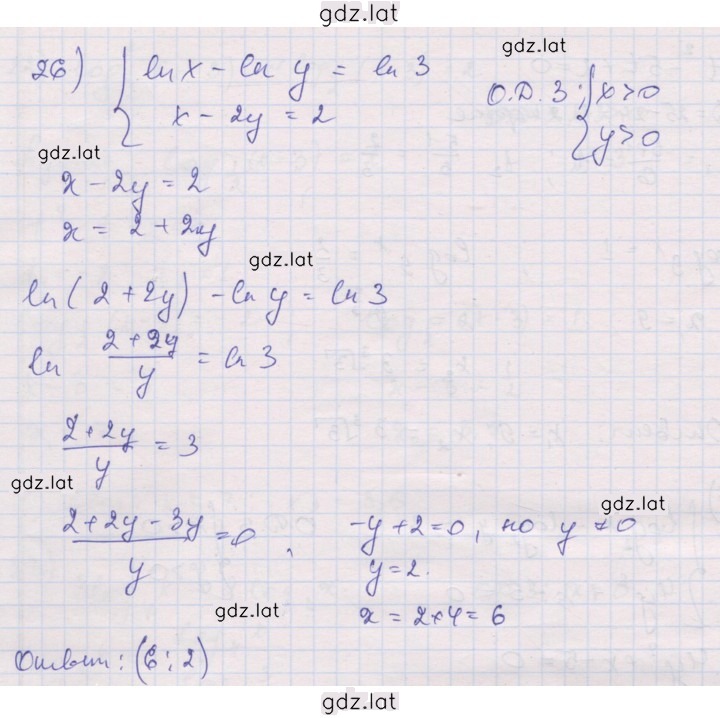 gdz.lat
26) { ln x - ln y = ln 3
x - 2y = 2
gdz.lat
О.Д.З.: { x > 0
y > 0
gdz.lat
x - 2y = 2
x = 2 + 2y
gdz.lat
ln(2 + 2y) - ln y = ln 3
ln (2 + 2y)/y = ln 3
(2 + 2y)/y = 3
gdz.lat
(2 + 2y - 3y)/y = 0,
gdz.lat
-y + 2 = 0, но y ≠ 0
y = 2.
x = 2 + 4 = 6
gdz.lat
Ответ: (6; 2)
gdz.lat